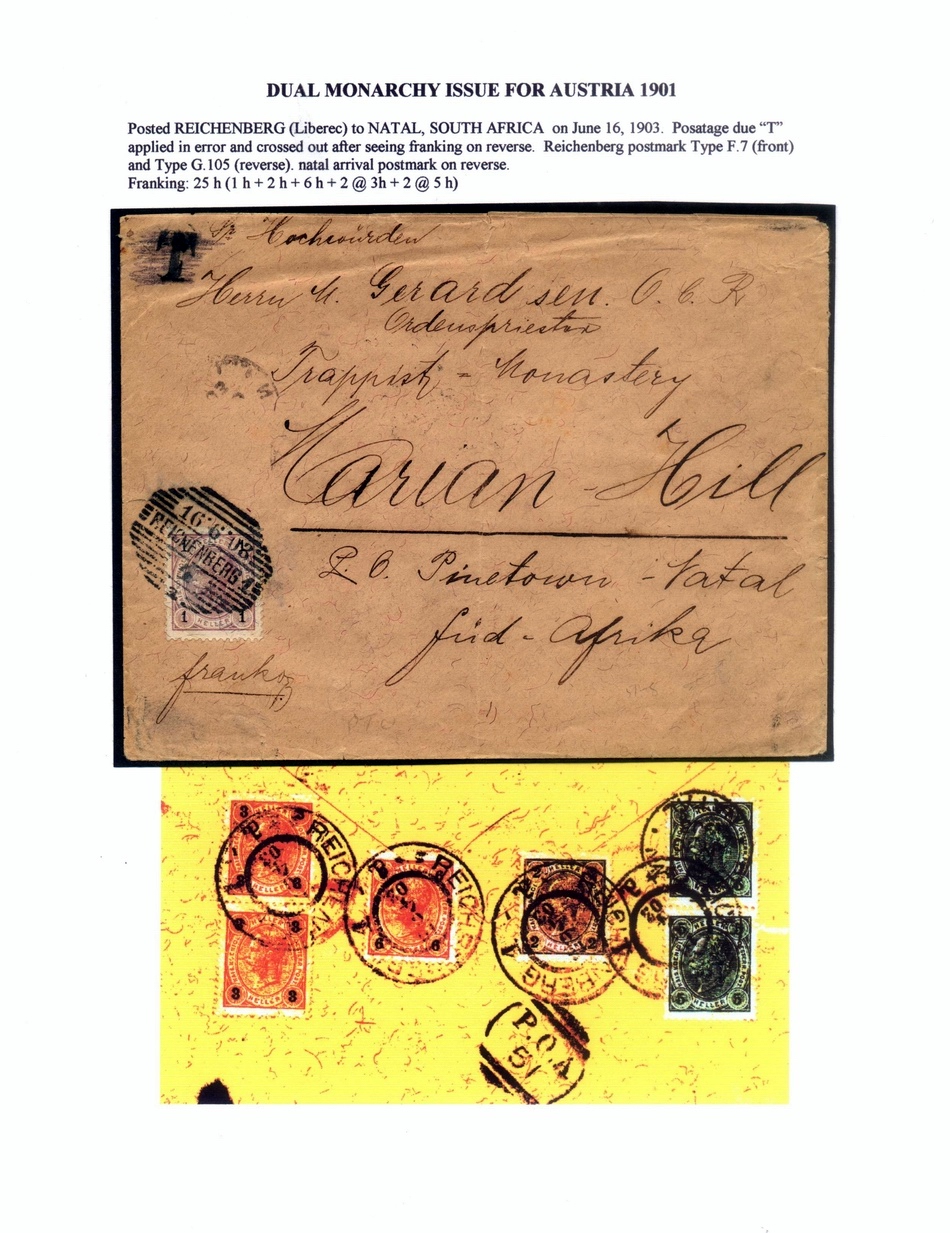 DUAL MONARCHY ISSUE FOR AUSTRIA 1901
Posted REICHENBERG (Liberec) to NATAL, SOUTH AFRICA on June 16, 1903. Posatage due “T”
applied in error and crossed out after seeing franking on reverse. Reichenberg postmark Type F.7 (front)
and Type G.105 (reverse). natal arrival postmark on reverse.
Franking: 25 h (1 h + 2 h + 6 h + 2 @ 3h + 2 @ 5 h)
T
Sr Hochwürden
Herrn M. Gerard sen. O. C. R
Ordenspriester
Trappist - Monastery
Marian - Hill
P. O. Pinetown - Natal
Süd - Afrika
16 6 03
REICHENBERG 1
1 HELLER 1
franko
3
REICHENBERG
HELLER
3 HELLER 3
REICHENBERG
6 6
2 2
5 HELLER 5
P.O.A